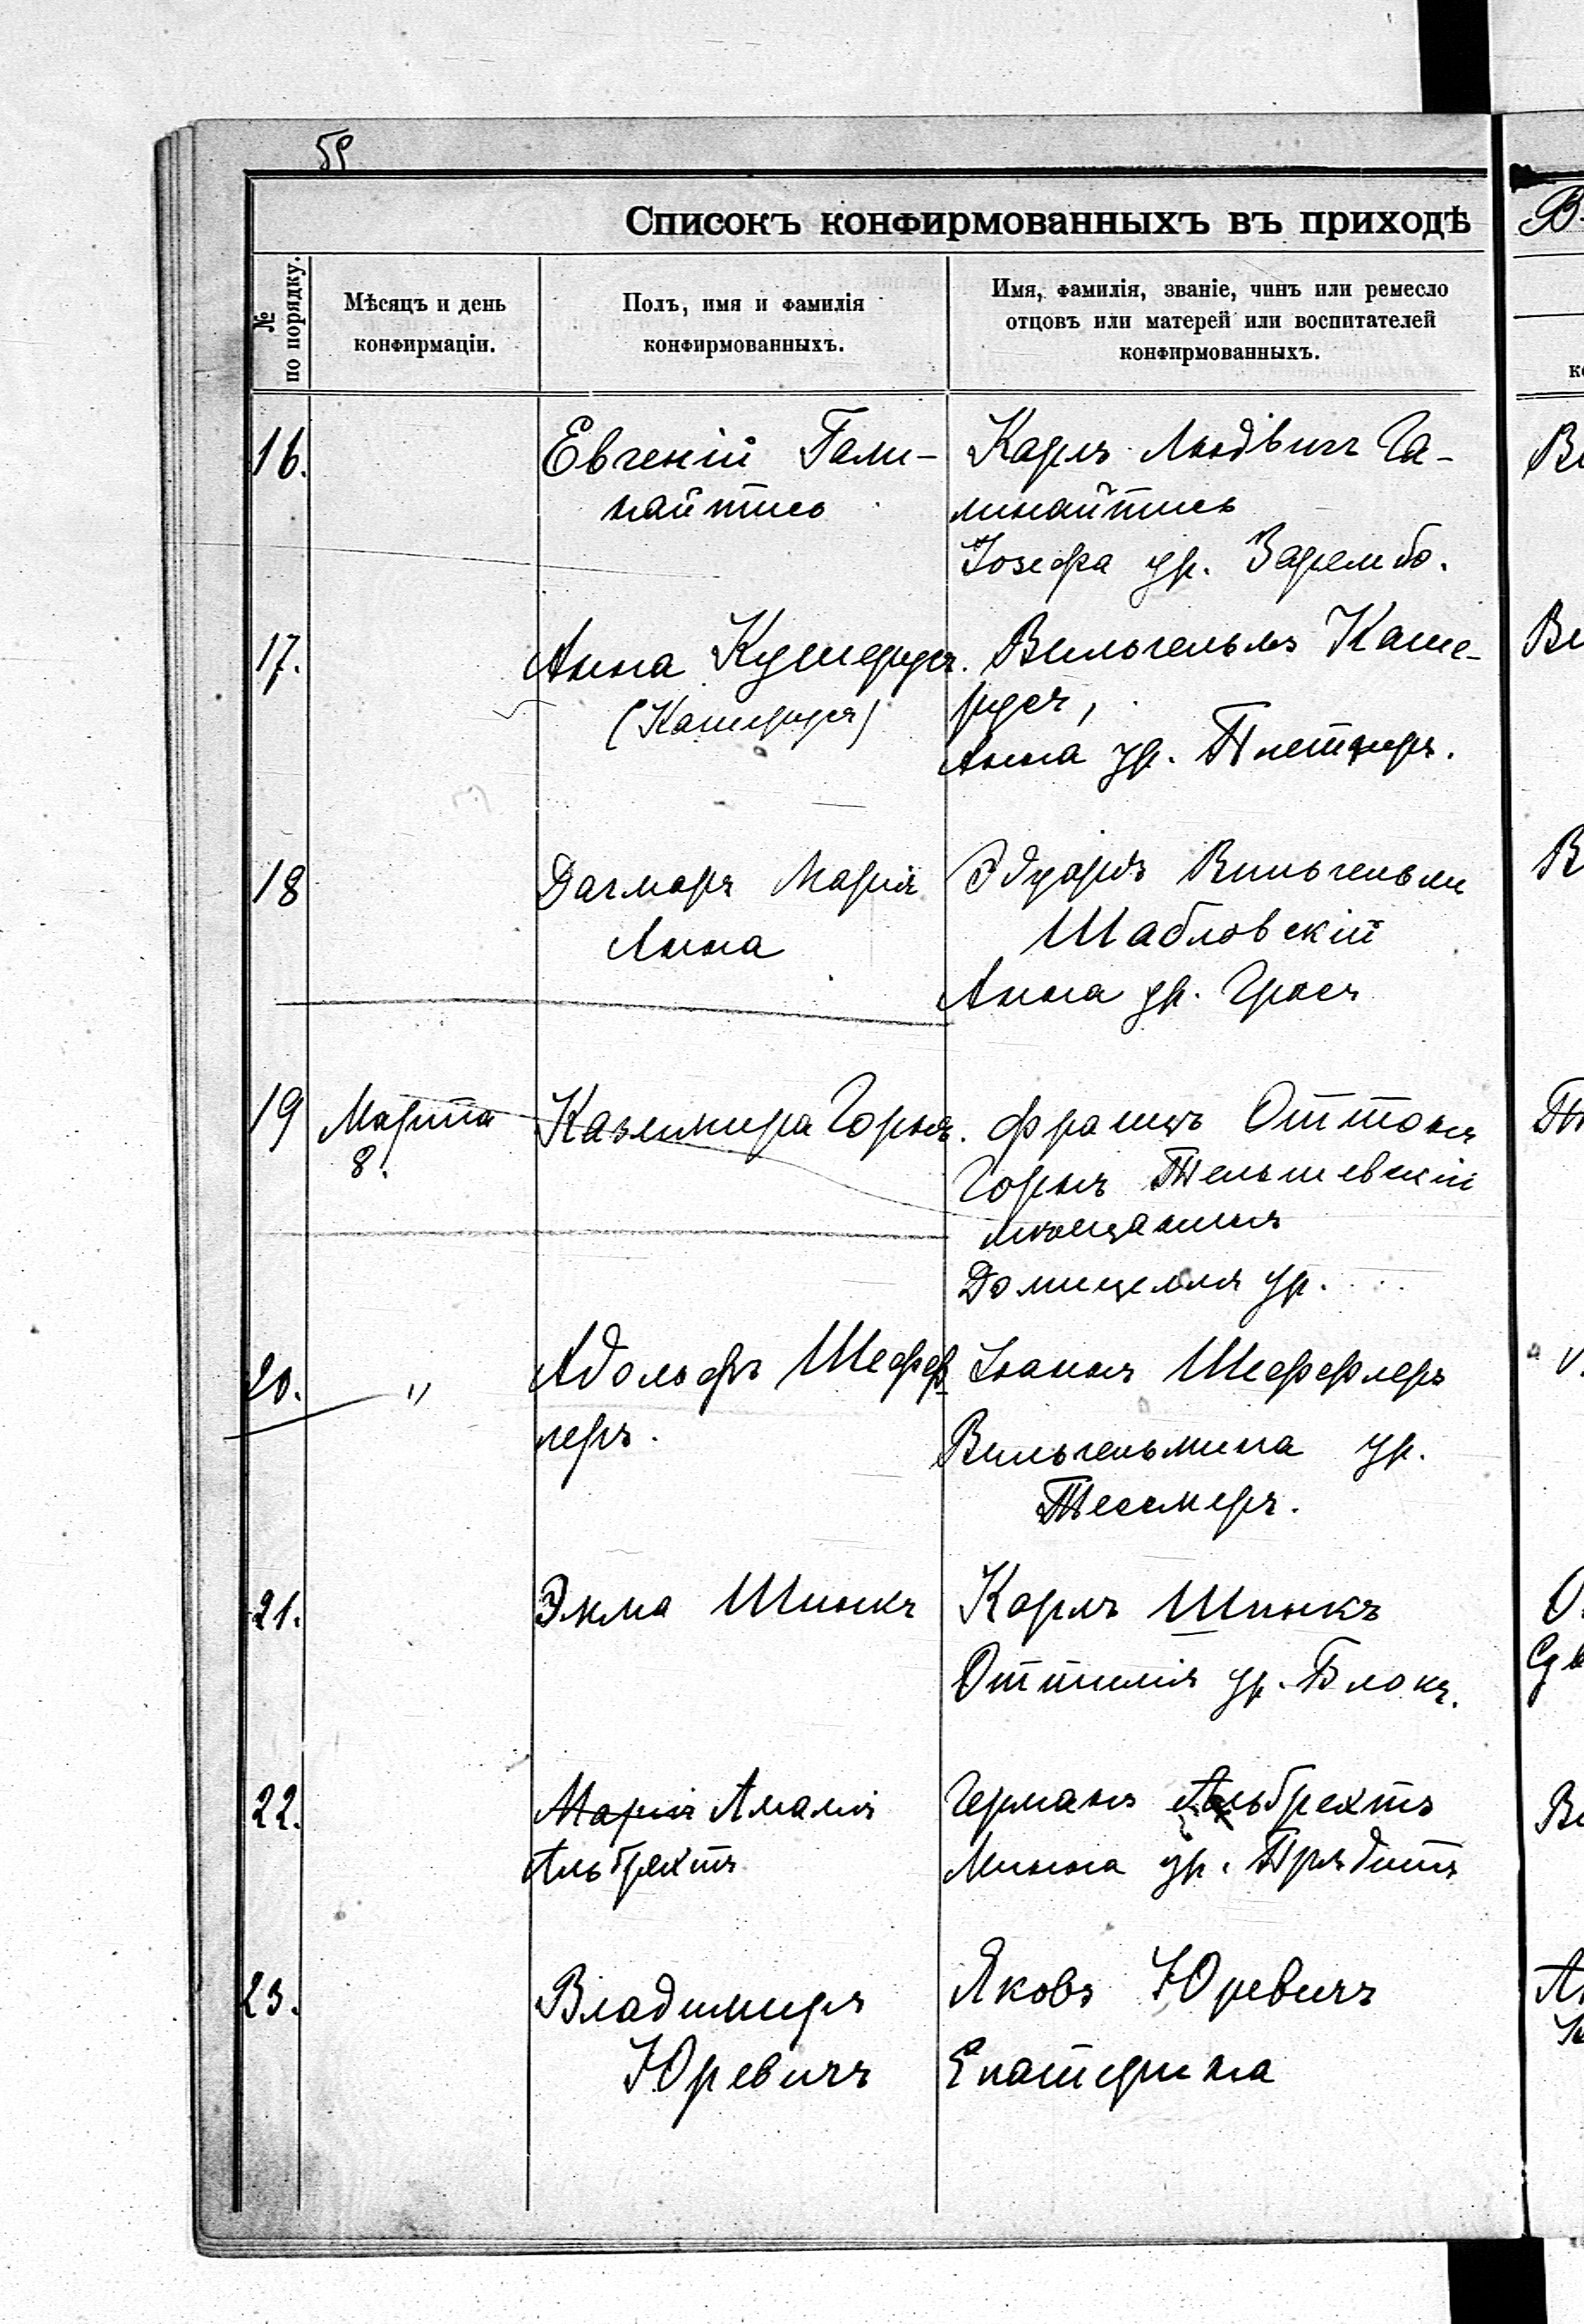 59
Списокъ конфирмованныхъ въ приходѣ
№ по порядку.
Мѣсяцъ и день
конфирмаціи.
Полъ, имя и фамилія
конфирмованныхъ.
Имя, фамилія, званіе, чинъ или ремесло
отцовъ или матерей или воспитателей
конфирмованныхъ.
16.
Евгеній Гали-
найтись
Карлъ Людвигъ Га-
линайтись
Іозефа ур. Зарембо.
17.
Анна Кушерусъ.
(Кашерусъ)
Вильгельмъ Каше-
русъ,
Анна ур.
18
Дагмаръ Марія
Анна
Эдуардъ Вильгельмъ
Шабловскій
Анна ур. Гросъ
19
Марта
8.
Казимира Горнъ.
Францъ Оттонъ
Горнъ Тельшевскій
мѣщанинъ
Домицелля ур.
20.
"
Адольфъ Шефф
леръ.
Іоаннъ Шеффлеръ
Вильгельмина ур.
Тессмеръ.
21.
Эмма Шинкъ
Карлъ Шинкъ
Оттилія ур. Блокъ.
22.
Марія Амалія
Альбрехтъ
Германъ Альбрехтъ
Минна ур.
23.
Владимиръ
Юревичъ
Яковъ Юревичъ
Екатерина